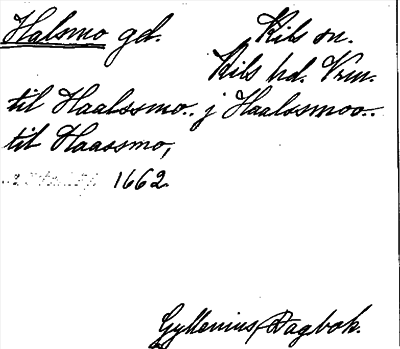 Halsmo gd. Kils sn.
Kils hd. Vrm.
til Haalssmo.. j Haalssmoo..
til Haassmo,
1662
Gyllenius Dagbok.